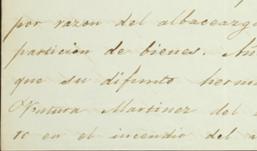 por razon del albaceazgo
particion de bienes.
que su difunto herm
Ventura Martinez del
en el incendio del